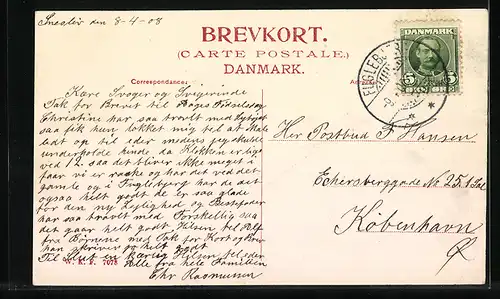 Snesløv den 8-4-08
BREVKORT.
(CARTE POSTALE.)
DANMARK.
Correspondance:
DANMARK
5 ØRE 5
FUGLEBJ
Kære Svoger og Svigerinde
Tak for Brevet til Aages Fødselsdag
Christine har saa travlt med
saa fik hun lokket mig til at Male
ledt op til eder medens jeg skulde
underholde hende da Klokken er lige
ved 12. saa det bliver ikke meget i
faar vi er raske og har det ved det
gamle og i Fuglebjerg har de det
ogsaa helt godt de er saa glade
for den ny Lejlighed og Bestefader
har saa travlt med Forskellig saa
det gaar helt godt Hilsen til Alf
fra Børnene med Tak for Kortet
han skriver og helt godt
Til Slut en kærlig Hilsen til eder
Alle fra hele Familien
Chr Rasmussen
W. K. F. 7078
Hr Postbud F Hansen
Eckersberggade Nr 25 1 Sal
København
Ø